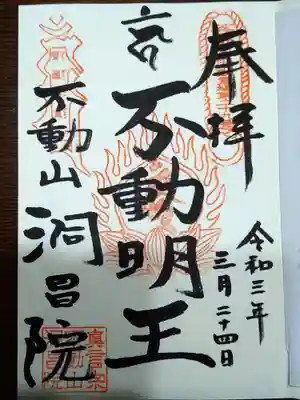 奉拝
令和三年
三月二十四日
不動明王
不動山
洞昌院
真言宗